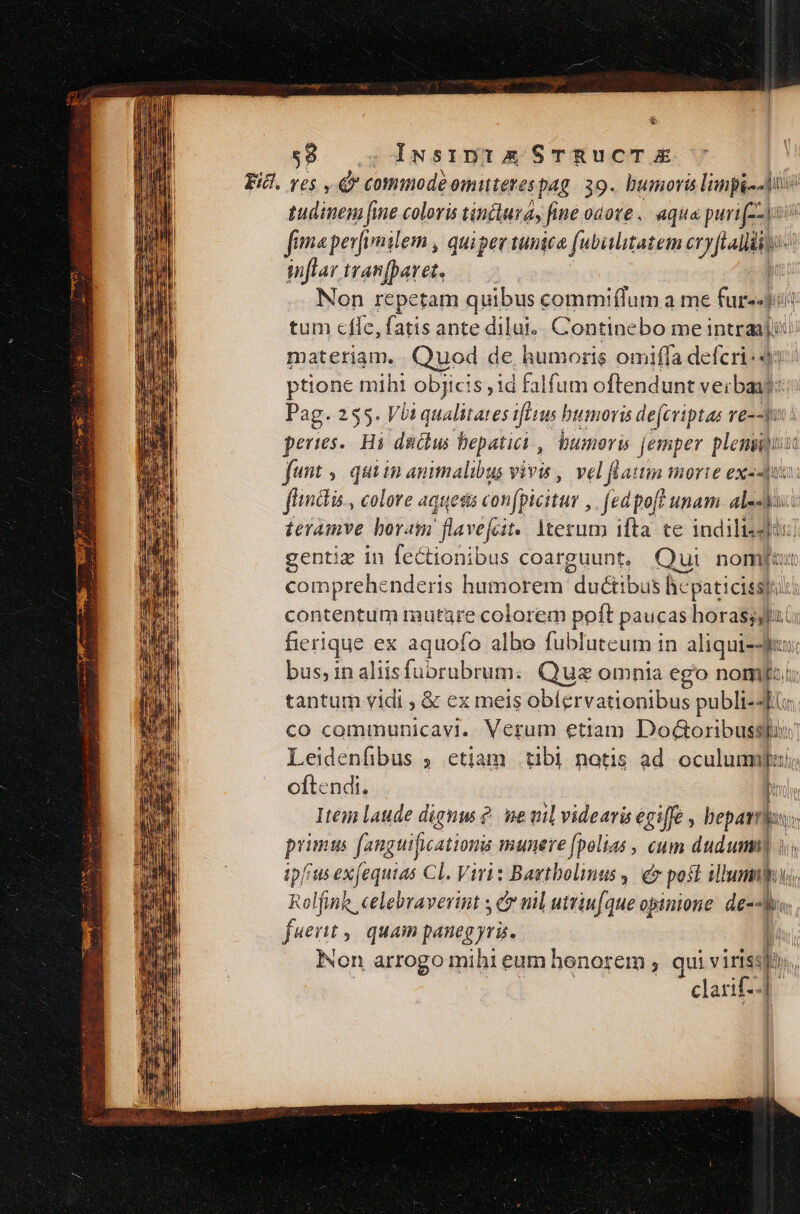 58 INSIDIÆ STRUCTÆ
Fid. res, & commode omitteres pag 39. humoris limpi-
tudinem sine coloris tinctura, sine odore, aquæ puris-
simæ persimilem, qui per tunicæ subtilitatem crystalli
instar transparet.
Non repetam quibus commissum a me fur-
tum esse, satis ante dilui. Continebo me intra
materiam. Quod de humoris omissa descri-
ptione mihi objicis, id falsum ostendunt verba
Pag. 255. Ubi qualitates istius humoris descriptas re-
peries. Hi ductus hepatici, humoris semper pleni
sunt, qui in animalibus vivis, vel statim morte ex-
stinctis, colore aqueus conspicitur, sed post unam al-
teramve horam flavescit. Iterum ista te indili-
gentiæ in sectionibus coarguunt. Qui non
comprehenderis humorem ductibus hepaticis
contentum mutare colorem post paucas horas,
fierique ex aquoso albo subluteum in aliqui-
bus, in aliis subrubrum. Quæ omnia ego non
tantum vidi, & ex meis observationibus publi-
co communicavi. Verum etiam Doctoribus
Leidensibus, etiam tibi notis ad oculum
ostendi.
Item laude dignus è ne nil videaris egisse, hepar
primus sanguificationis munere spolias, cum dudum
ipsius exsequias Cl. Viri: Bartholinus, & post illum
Rolfink celebraverint, & nil utriusque opinione de-
fuerit, quam panegyris.
Non arrogo mihi eum honorem, qui viris
claris-